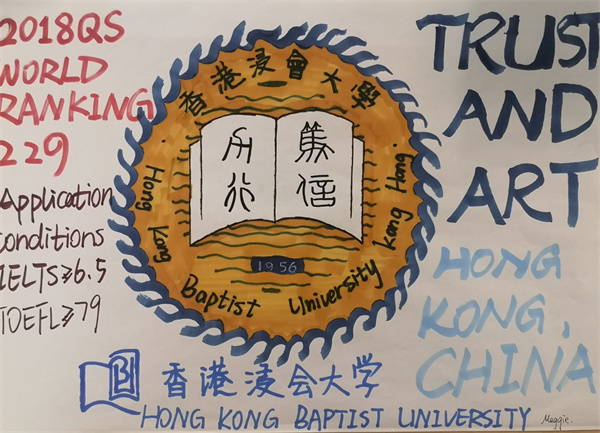 2018QS
WORLD
RANKING
229
Application
conditions
IELTS≥6.5
TOEFL≥79
香港浸會大學
篤信
力行
Hong Kong Baptist University Kong Hong.
1956
TRUST
AND
ART
HONG
KONG,
CHINA
香港浸会大学
HONG KONG BAPTIST UNIVERSITY
Meggie.